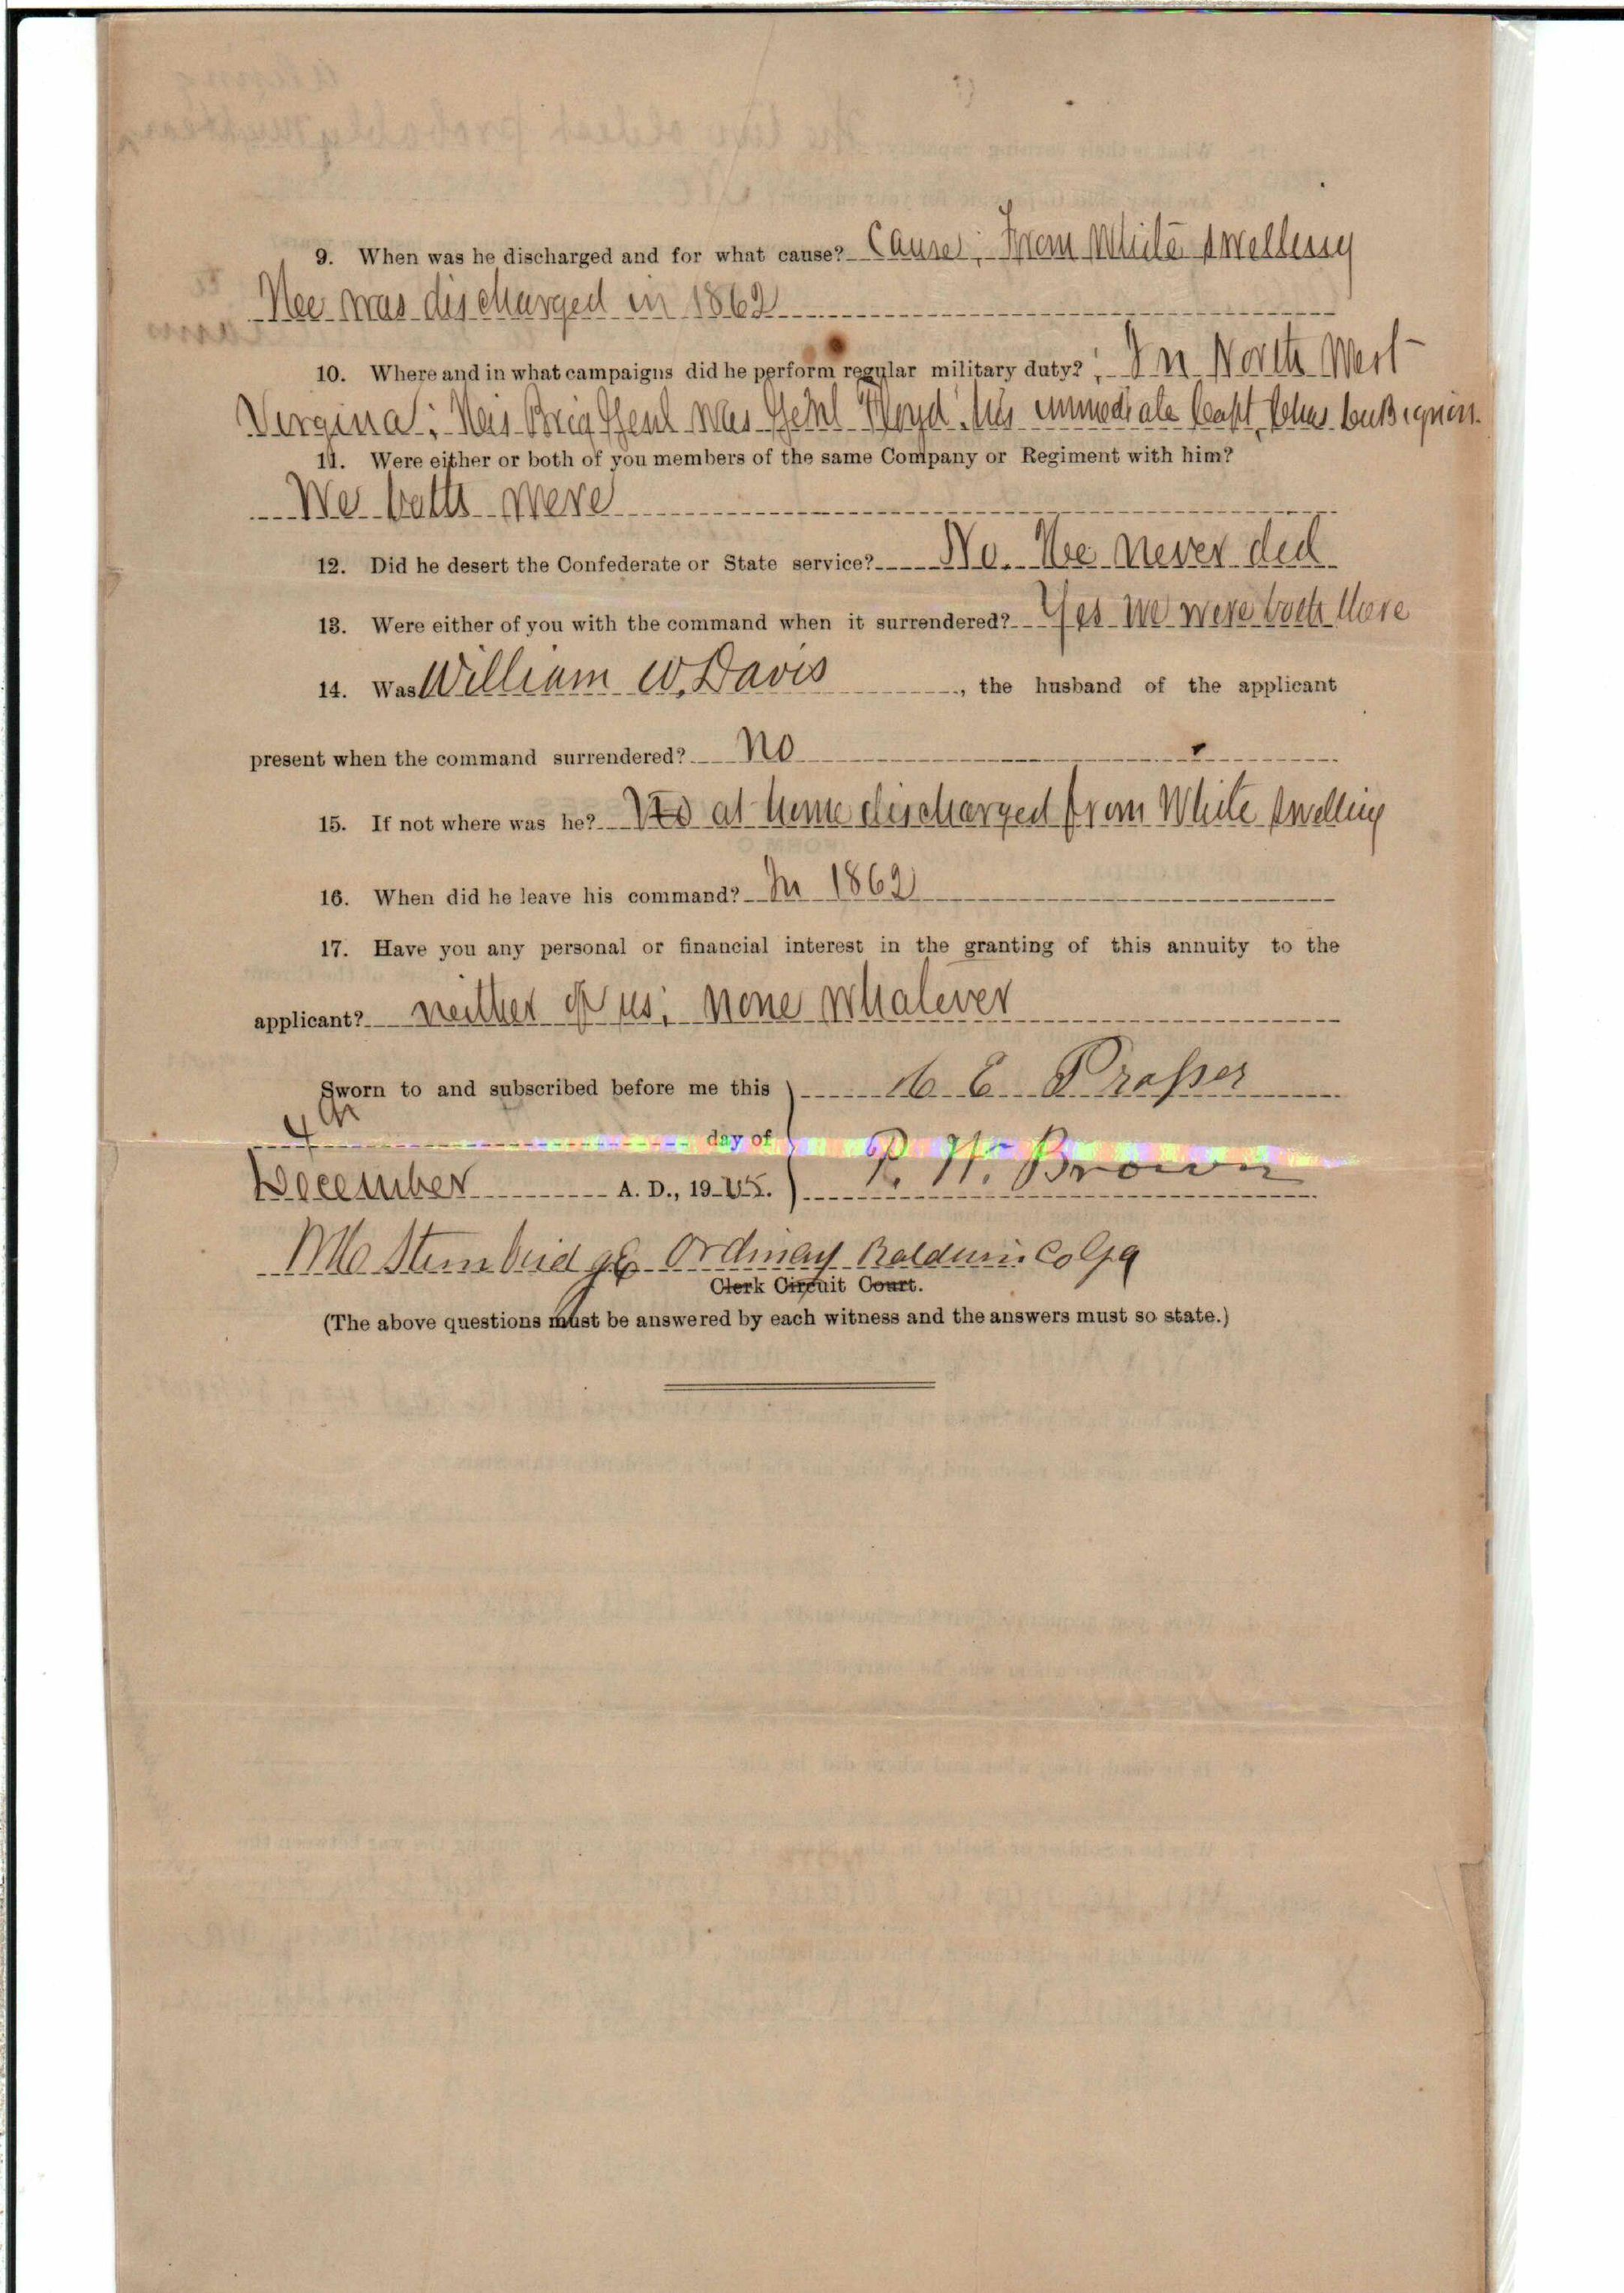 9. When was he discharged and for what cause? Cause; From White Swelling
Hee was discharged in 1862
10. Where and in what campaigns did he perform regular military duty? ; In North West
Virgina; His Brig Genl was Genl Floyd. his immediate Capt,
11. Were either or both of you members of the same Company or Regiment with him?
We both were
12. Did he desert the Confederate or State service? No. Hee never did
13. Were either of you with the command when it surrendered? Yes we were both there
14. Was William W. Davis, the husband of the applicant
present when the command surrendered? No
15. If not where was he? No at home discharged from White Swelling
16. When did he leave his command? In 1862
17. Have you any personal or financial interest in the granting of this annuity to the
applicant? neither of us; none whatever
Sworn to and subscribed before me this
4th day of
December A. D., 1905.
E Prosser
P. W. Brown
Ordinary Baldwin Co Ga
Clerk Circuit Court.
(The above questions must be answered by each witness and the answers must so state.)